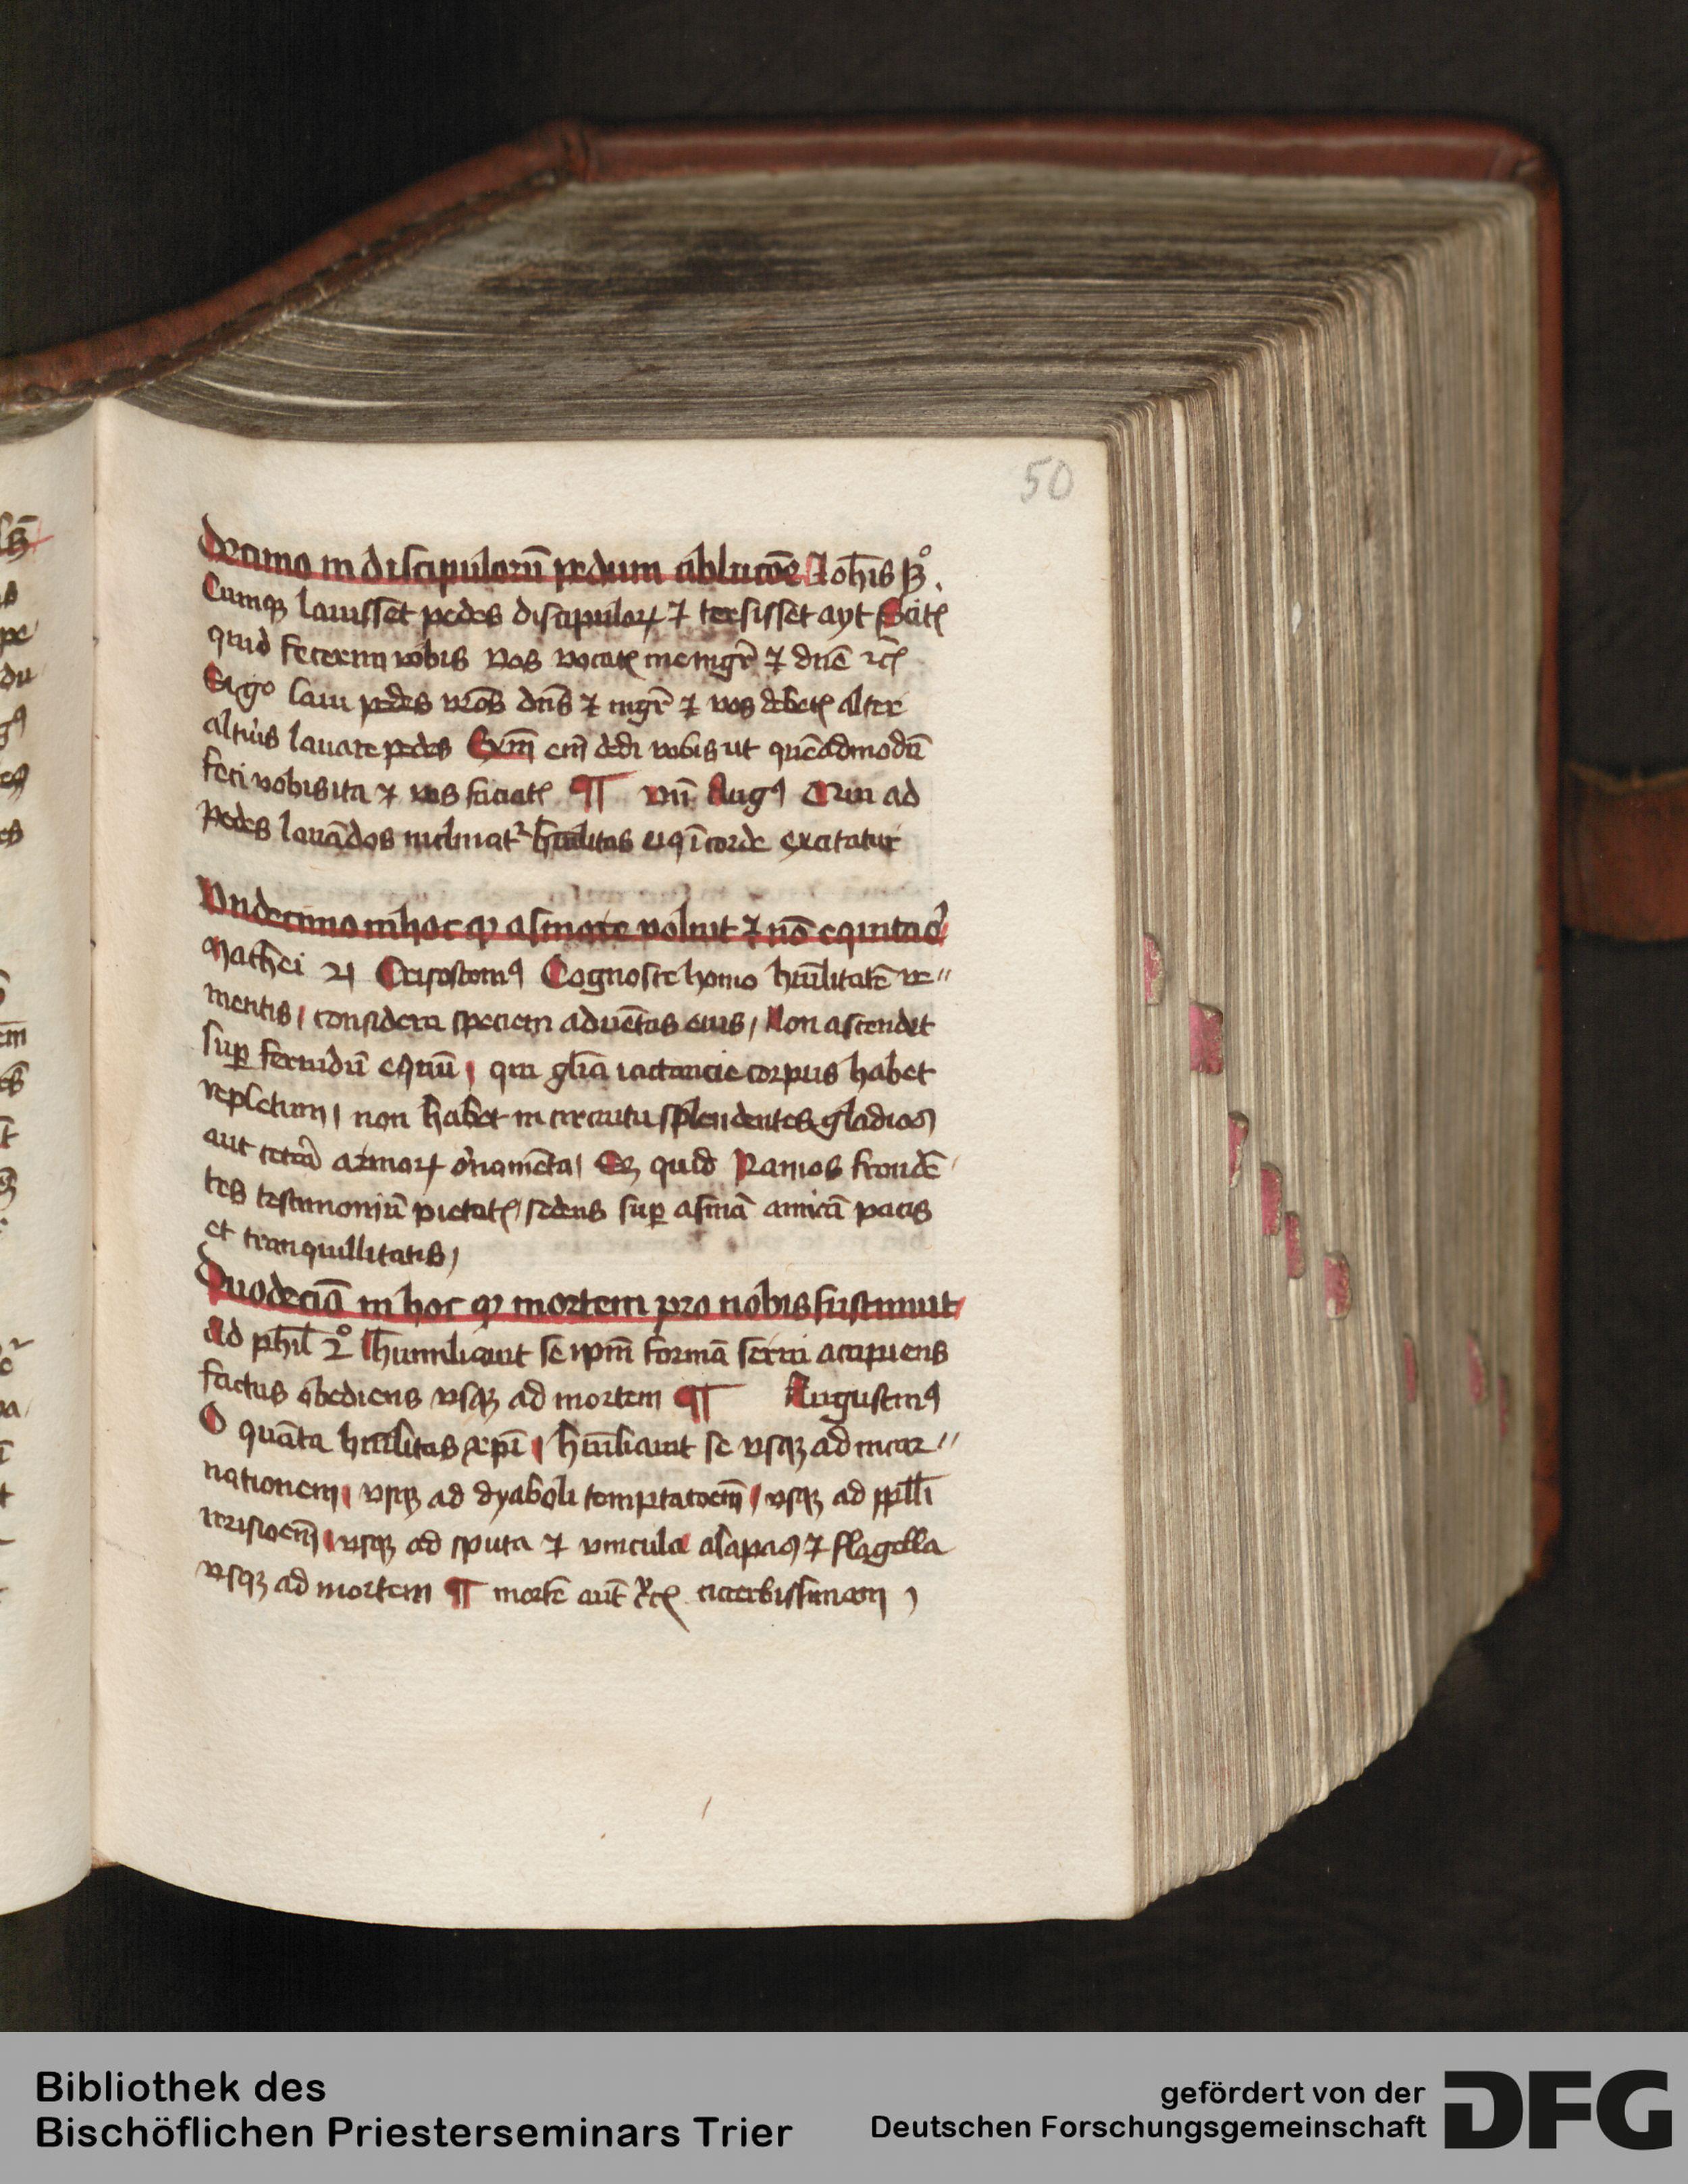 50
Decimo in discipuloru̅ pedum ablucōe Joh̅is 13°.
Cumqꝫ lauisset pedes discipuloꝝ ⁊ tersisset ayt Scitꝭ
quid fecerim vobis Vos vocatꝭ me mgr̅ ⁊ dn̅e ⁊cꝭ
Ergo laui pedes vr̅os dn̅s ⁊ mgr̅ ⁊ vos debetꝭ alter
altius lauare pedes Exm̅ em̅ dedi vobis ut que̅admodu̅
feci vobis ita ⁊ vos faciatꝭ ¶ vn̅ Augꝰ Cum ad
Pedes laua̅dos inclinatᷣ hu̅ilitas ei qͥ i̅ corde excitatur
Vndecimo in hoc ꝙ asinare voluit ⁊ no̅ equitaꝰ
Mathei 21 Crisostomꝰ Cognosce homo hu̅ilitate̅ ve〃
mentis / considera speciem adue̅tus eius / Non ascendit
suꝑ feruidu̅ equu̅ / qui gl̅ia iactancie corpus habet
repletum / non habet in circuitu splendentes gladios
aut cetera armoꝝ orname̅ta / Sꝫ quid Ramos fronde̅
tes testimoniu̅ pietatꝭ / sedens suꝑ asina̅ amica̅ pacis
et tranquillitatis /
Duodecīo̅ in hoc ꝙ mortem pro nobis sustinuit
Ad phil̅ 2° Humiliauit se ip̅m forma̅ serui accipiens
factus obediens vsqꝫ ad mortem ¶ Augustinꝰ
O qua̅ta hu̅ilitas xp̅i / hu̅iliauit se vsqꝫ ad incar〃
nationem / vsqꝫ ad dyaboli temptatoe̅m / vsqꝫ ad ppl̅i
irrisioe̅m / vsqꝫ ad sputa ⁊ vincula alapas ⁊ flagella
vsqꝫ ad mortem ¶ morte̅ aut̅ ꝭcꝭ acerbissimam /
Bibliothek des
Bischöflichen Priesterseminars Trier
gefördert von der
Deutschen Forschungsgemeinschaft
DFG